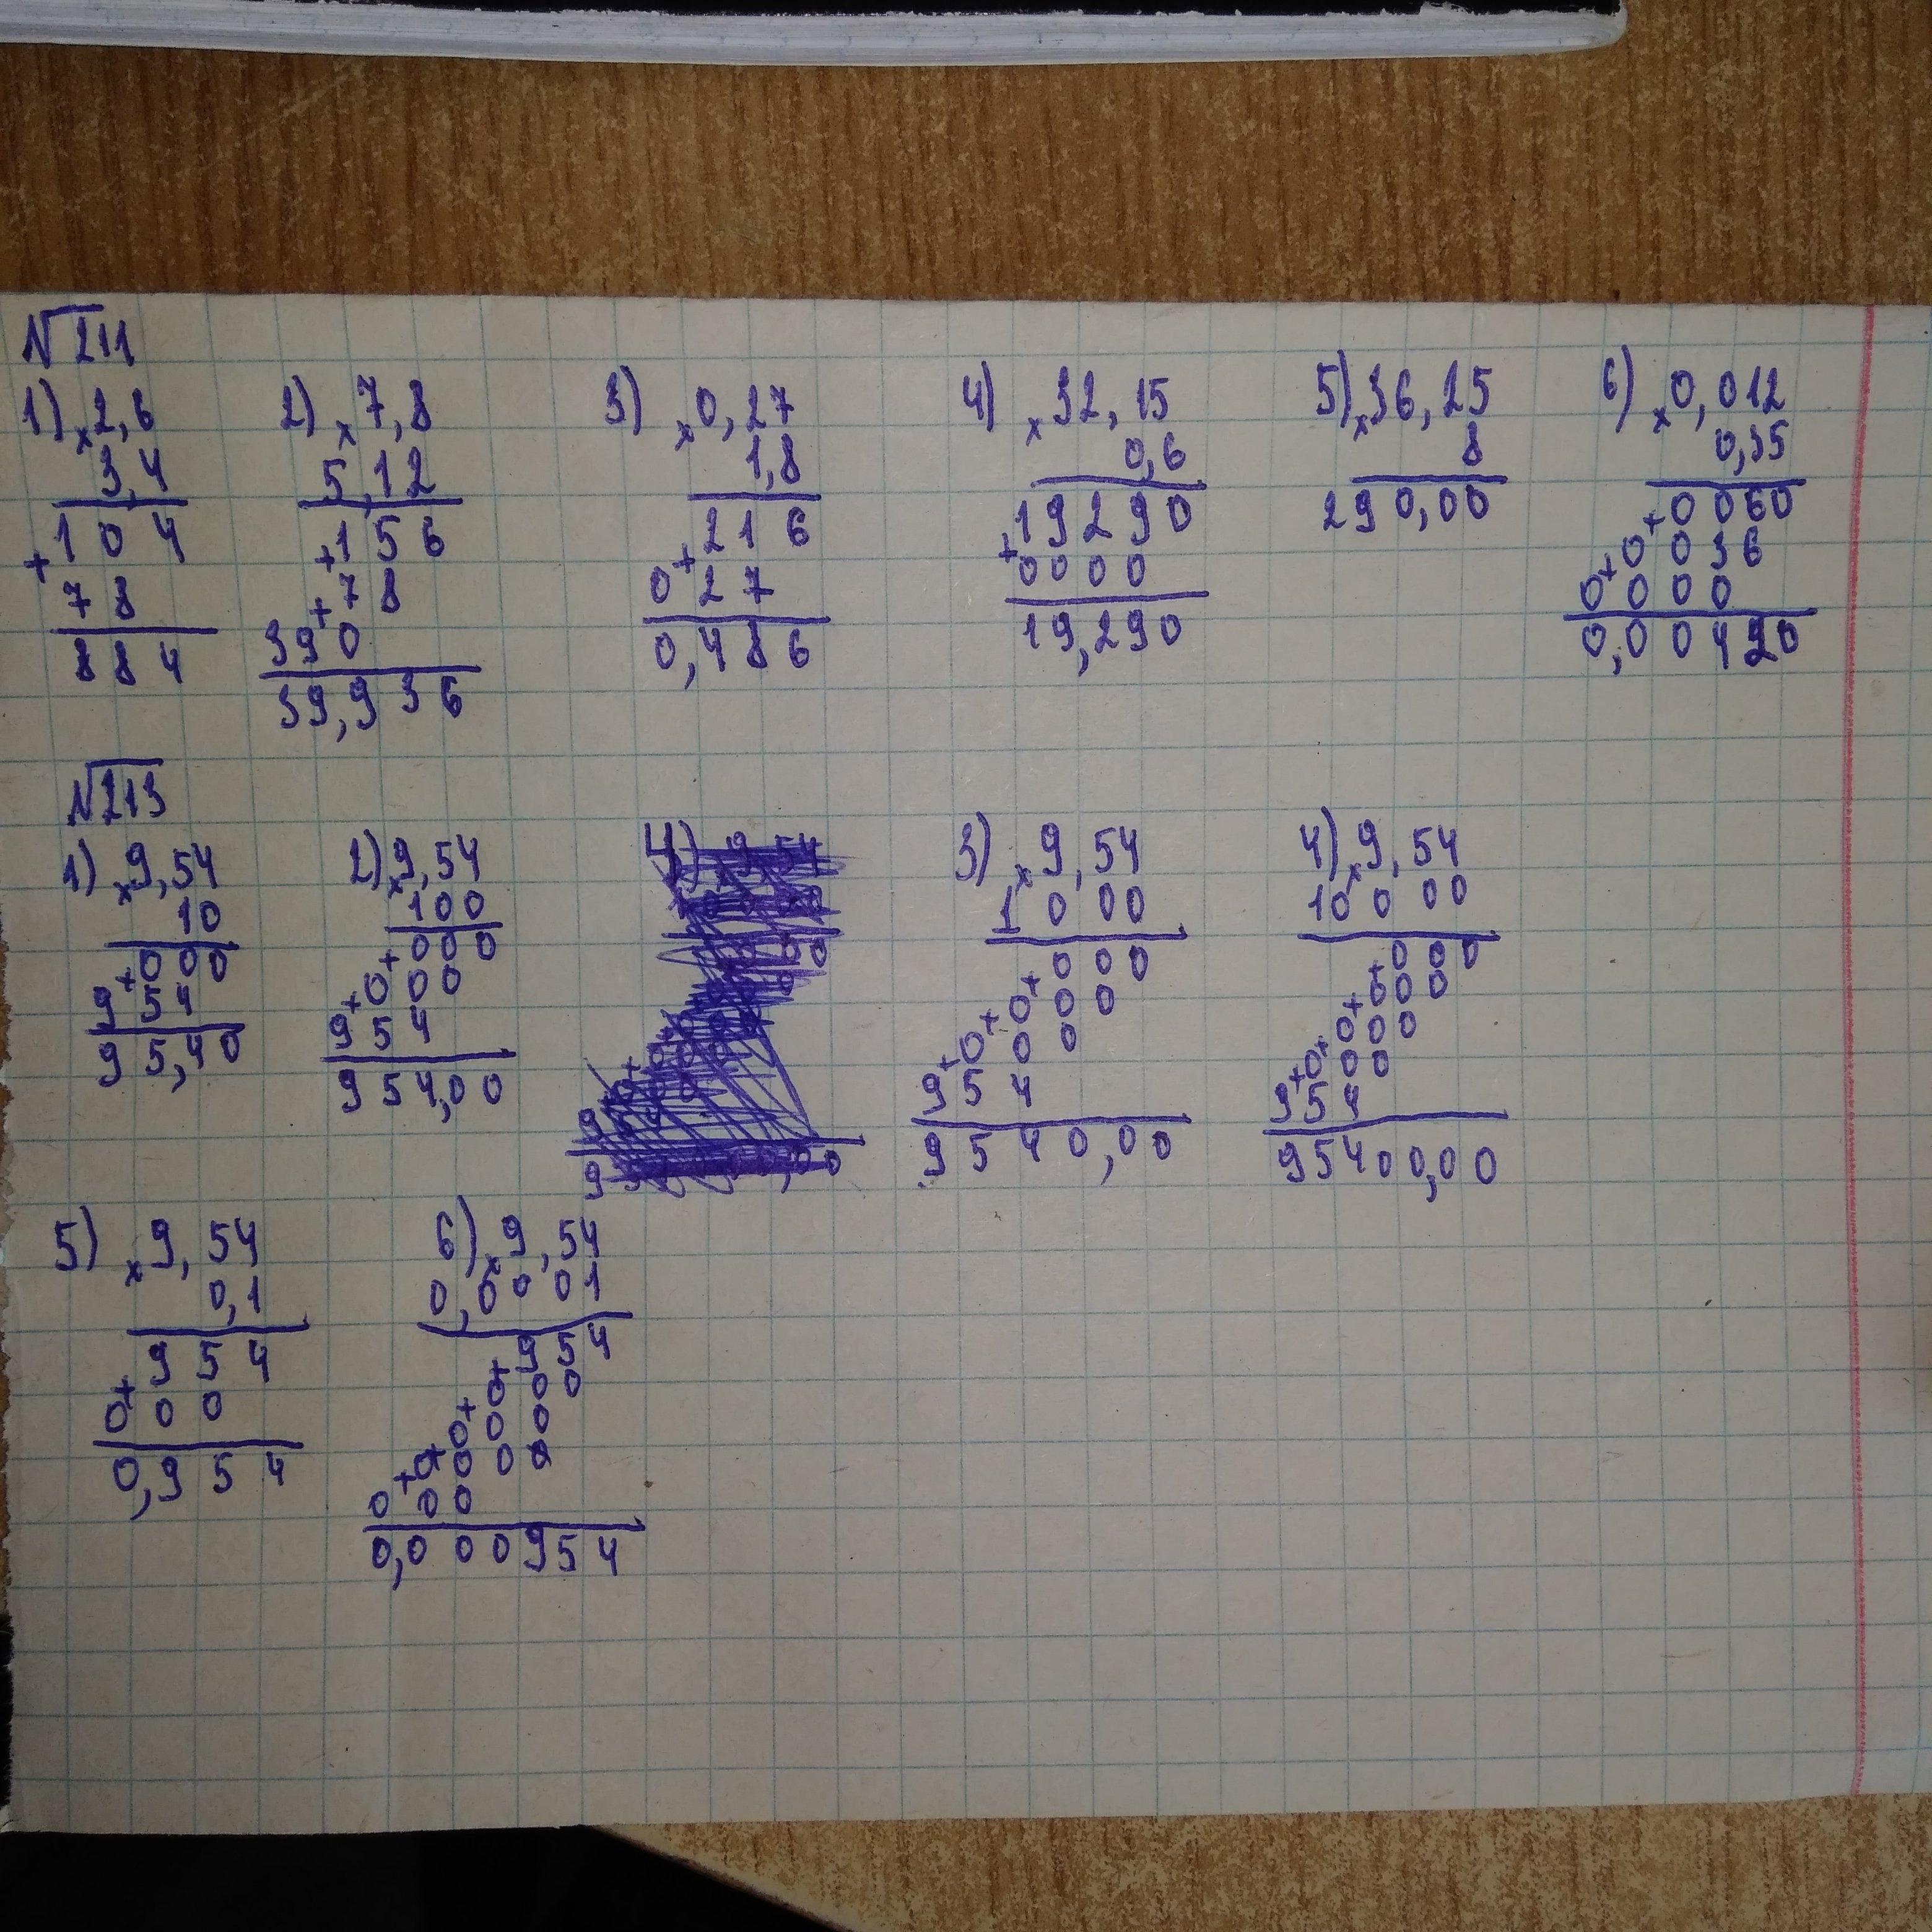 №211
1) ×2,6
3,4
+104
78
884
2) ×7,8
5,12
+156
+78
390
39,936
3) ×0,27
1,8
+216
027
0,486
4) ×32,15
0,6
+19290
0000
19,290
5) ×36,25
8
290,00
6) ×0,012
0,35
+0060
+0036
0000
0,00420
№213
1) ×9,54
10
+000
954
95,40
2) ×9,54
100
+000
+000
954
954,00
4)
3) ×9,54
1000
+000
+000
+000
954
9540,00
4) ×9,54
10000
+000
+000
+000
+000
954
95400,00
5) ×9,54
0,1
+954
000
0,954
6) ×9,54
0,0001
+954
+000
+000
+0000
000
0,000954